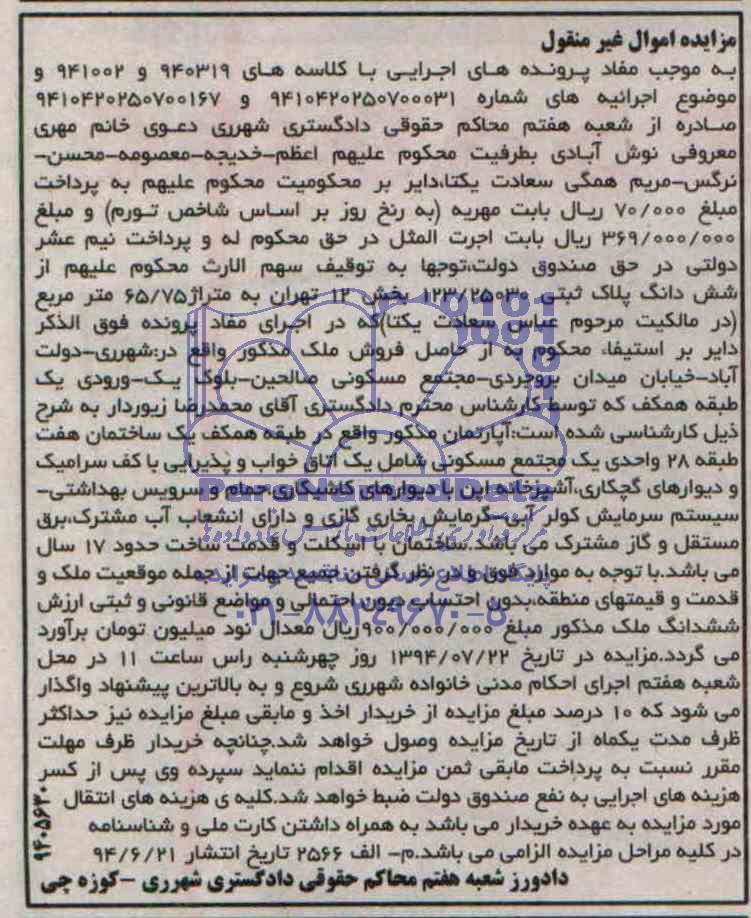 مزایده اموال غیر منقول
به موجب مفاد پرونده های اجرایی با کلاسه های ۹۴۰۳۱۹ و ۹۴۱۰۰۲ و
موضوع اجرائیه های شماره ۹۴۱۰۴۲۰۲۵۰۷۰۰۰۳۱ و ۹۴۱۰۴۲۰۲۵۰۷۰۰۱۶۷
صادره از شعبه هفتم محاکم حقوقی دادگستری شهرری دعوی خانم مهری
معروفی نوش آبادی بطرفیت محکوم علیهم اعظم-خدیجه-معصومه-محسن-
نرگس-مریم همگی سعادت یکتا،دایر بر محکومیت محکوم علیهم به پرداخت
مبلغ ۷۰/۰۰۰ ریال بابت مهریه (به رنخ روز بر اساس شاخص تورم) و مبلغ
۳۶۹/۰۰۰/۰۰۰ ریال بابت اجرت المثل در حق محکوم له و پرداخت نیم عشر
دولتی در حق صندوق دولت،توجها به توقیف سهم الارث محکوم علیهم از
شش دانگ پلاک ثبتی ۱۲۳/۲۵۰۳۰ بخش ۱۲ تهران به متراژ۶۵/۷۵ متر مربع
(در مالکیت مرحوم عباس سعادت یکتا)که در اجرای مفاد پرونده فوق الذکر
دایر بر استیفا، محکوم به از حاصل فروش ملک مذکور واقع در:شهرری-دولت
آباد-خیابان میدان بروجردی-مجتمع مسکونی صالحین-بلوک یک-ورودی یک
طبقه همکف که توسط کارشناس محترم دادگستری آقای محمدرضا زیوردار به شرح
ذیل کارشناسی شده است:آپارتمان مذکور واقع در طبقه همکف یک ساختمان هفت
طبقه ۲۸ واحدی یک مجتمع مسکونی شامل یک اتاق خواب و پذیرایی با کف سرامیک
و دیوارهای گچکاری،آشپزخانه اپن با دیوارهای کاشیکاری،حمام و سرویس بهداشتی-
سیستم سرمایش کولر آبی-گرمایش بخاری گازی و دارای انشعاب آب مشترک،برق
مستقل و گاز مشترک می باشد.ساختمان با اسکلت و قدمت ساخت حدود ۱۷ سال
می باشد.با توجه به موارد فوق و در نظر گرفتن جمیع جهات از جمله موقعیت ملک و
قدمت و قیمتهای منطقه،بدون احتساب دیون احتمالی و مواضع قانونی و ثبتی ارزش
ششدانگ ملک مذکور مبلغ ۹۰۰/۰۰۰/۰۰۰ریال معدال نود میلیون تومان برآورد
می گردد.مزایده در تاریخ ۱۳۹۴/۰۷/۲۲ روز چهرشنبه راس ساعت ۱۱ در محل
شعبه هفتم اجرای احکام مدنی خانواده شهرری شروع و به بالاترین پیشنهاد واگذار
می شود که ۱۰ درصد مبلغ مزایده از خریدار اخذ و مابقی مبلغ مزایده نیز حداکثر
ظرف مدت یکماه از تاریخ مزایده وصول خواهد شد.چنانچه خریدار ظرف مهلت
مقرر نسبت به پرداخت مابقی ثمن مزایده اقدام ننماید سپرده وی پس از کسر
هزینه های اجرایی به نفع صندوق دولت ضبط خواهد شد.کلیه ی هزینه های انتقال
مورد مزایده به عهده خریدار می باشد به همراه داشتن کارت ملی و شناسنامه
در کلیه مراحل مزایده الزامی می باشد.م- الف ۲۵۶۶ تاریخ انتشار ۹۴/۶/۲۱
دادورز شعبه هفتم محاکم حقوقی دادگستری شهرری -کوزه چی
۹۴۰۵۶۳۰
ParsNamadData
۰۲۱-۸۸۳۴۹۶۷۰-۵